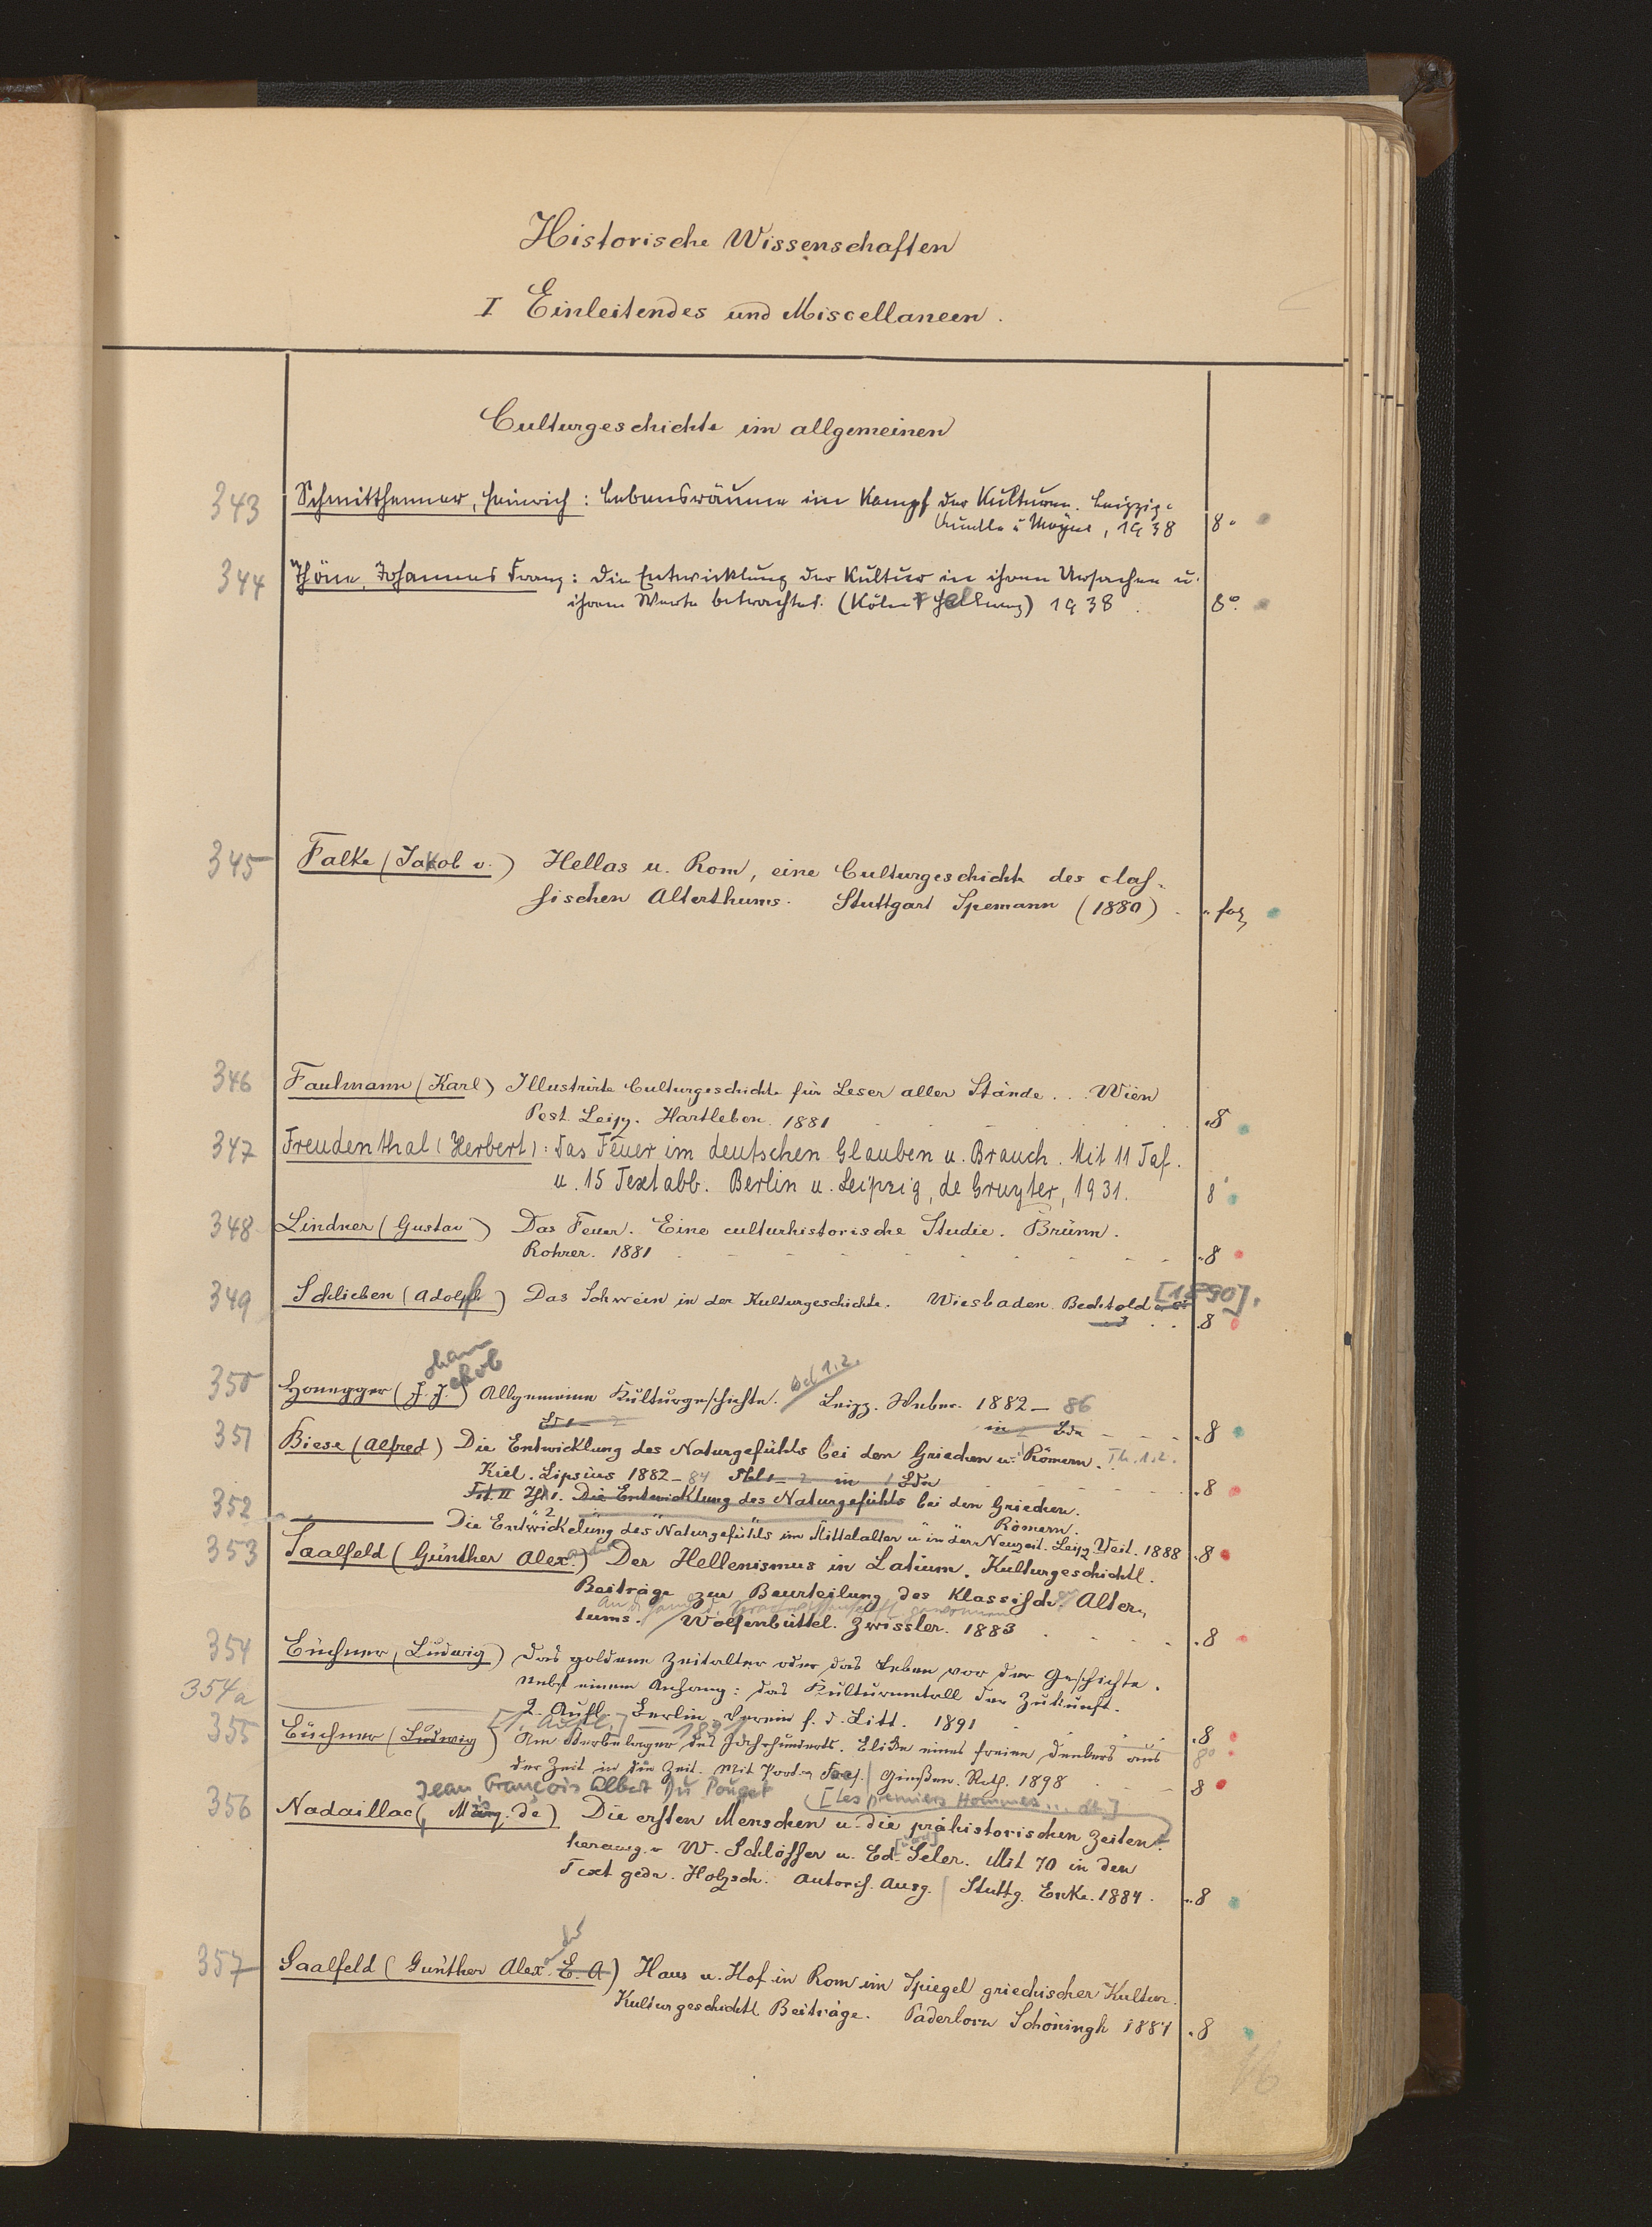 Historische Wissenschaften
I Einleitendes und Miscellaneen.
Culturgeschichte im allgemeinen
343 Schmitthenner, Heinrich: Lebensräume im Kampf der Kulturen. Leipzig:
Quelle u Meyer, 1938 8°
344 Thöne, Johannes Franz: Die Entwicklung der Kultur in ihren Ursachen u.
ihrem Werte betrachtet. (Köln) 1938. 8°.
345 Falke (Jakob v.) Hellas u. Rom, eine Culturgeschichte des claſ-
ſischen Alterthums. Stuttgart Spemann (1880). fol
346 Faulmann (Karl) Illustrirte Culturgeschichte für Leser aller Stände... Wien
Pest. Leipz. Hartleben. 1881 8
347 Freudenthal (Herbert): Das Feuer im deutschen Glauben u. Brauch. Mit 11 Taf.
u. 15 Textabb. Berlin u. Leipzig, de Gruyter, 1931. 8°
348 Lindner (Gustav) Das Feuer. Eine culturhistorische Studie. Brünn.
Rohrer. 1881 8
349 Schlieben (Adolf) Das Schwein in der Kulturgeschichte. Wiesbaden. Bechtold [1890].
8
ohann
akob
350 Honegger (J. J.) Allgemeine Kulturgeschichte. Bd 1.2. Leipz. Weber. 1882–86
Bd 1–2 in 2 Bdn 8
351 Biese (Alfred) Die Entwicklung des Naturgefühls bei den Griechen u. Römern. Th. 1.2.
Kiel. Lipsius 1882–84 Thl 1–2 in 1 Bdn 8
Thl 1. Die Entwicklung des Naturgefühls bei den Griechen.
2 " " " Römern.
352 Die Entwickelung des Naturgefühls im Mittelalter u in der Neuzeit. Leipz Veit. 1888 8
353 Saalfeld (Günther Alex.) Der Hellenismus in Latium. Kulturgeschichtl.
Beiträge zur Beurteilung des Klassiſch. Alter-
An d. Hand d. Sprachwissenschaft gewonnen
tums. Wolfenbüttel. Zwissler. 1883 8
354 Büchner (Ludwig) Das goldene Zeitalter oder das Leben vor der Geschichte.
Nebst einem Anhang: das Kulturmetall der Zukunft.
2. Aufl. Berlin Verein f. d. Litt. 1891 8
354a [1. Aufl.] – 1891 8°
355 Büchner (Ludwig) Am Sterbelager des Jahrhunderts. Blicke eines freien Denkers aus
der Zeit in die Zeit. Mit Portr. Gießen. Roth. 1898 8
Jean François Albert Du Pouget [Les premiers Hommes... dt.]
356 Nadaillac (, Marq. de) Die erſten Menschen u. die prähistorischen Zeiten.
herausg. v W. Schlöſſer u. Ed. Seler. Mit 70 in den
Text gedr. Holzsch. Autoriſ. Ausg. Stuttg. Enke. 1884. 8
357 Saalfeld (Günther Alex. E. A) Haus u. Hof in Rom im Spiegel griechischer Kultur.
Kulturgeschichtl Beiträge. Paderborn Schöningh 1884 8
16